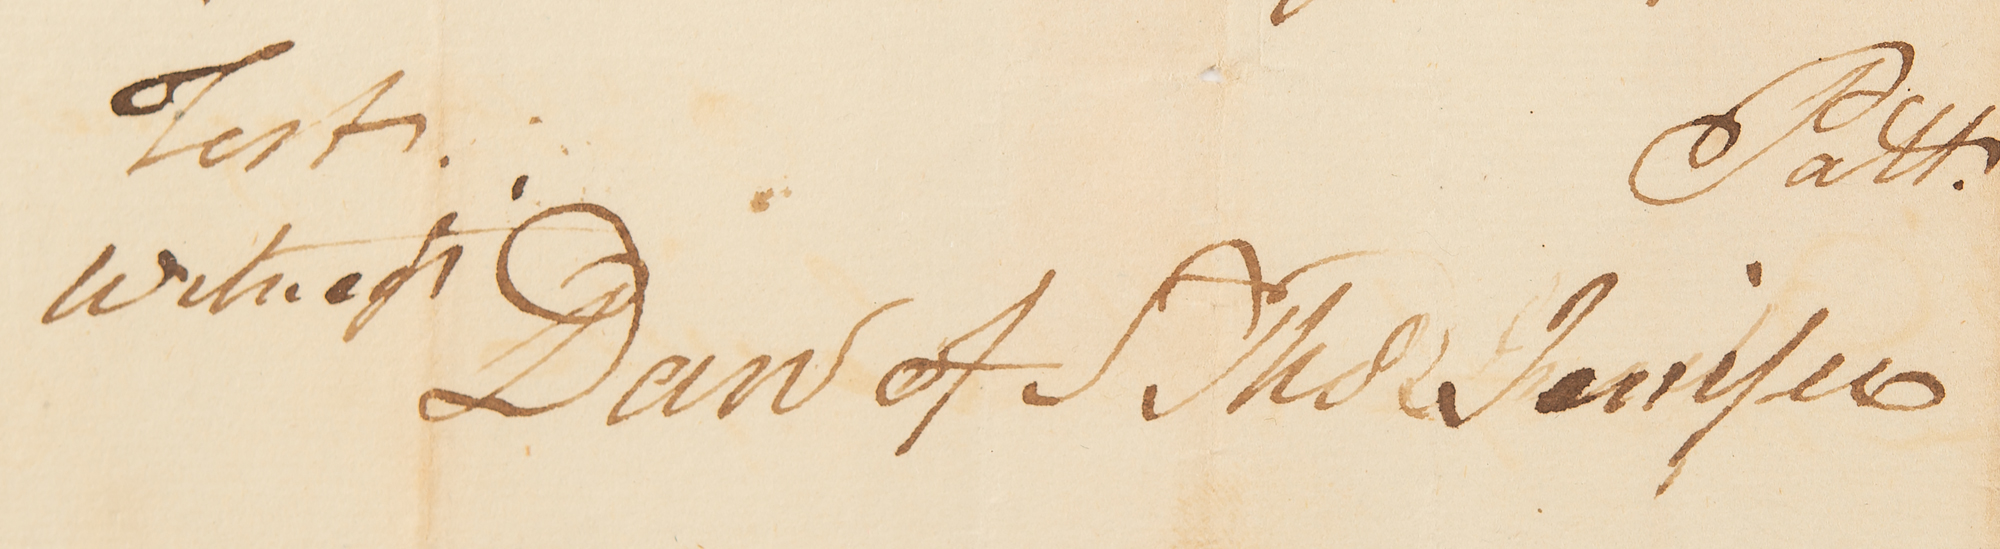 Test.
Witness
Dan of S Tho Jenifer